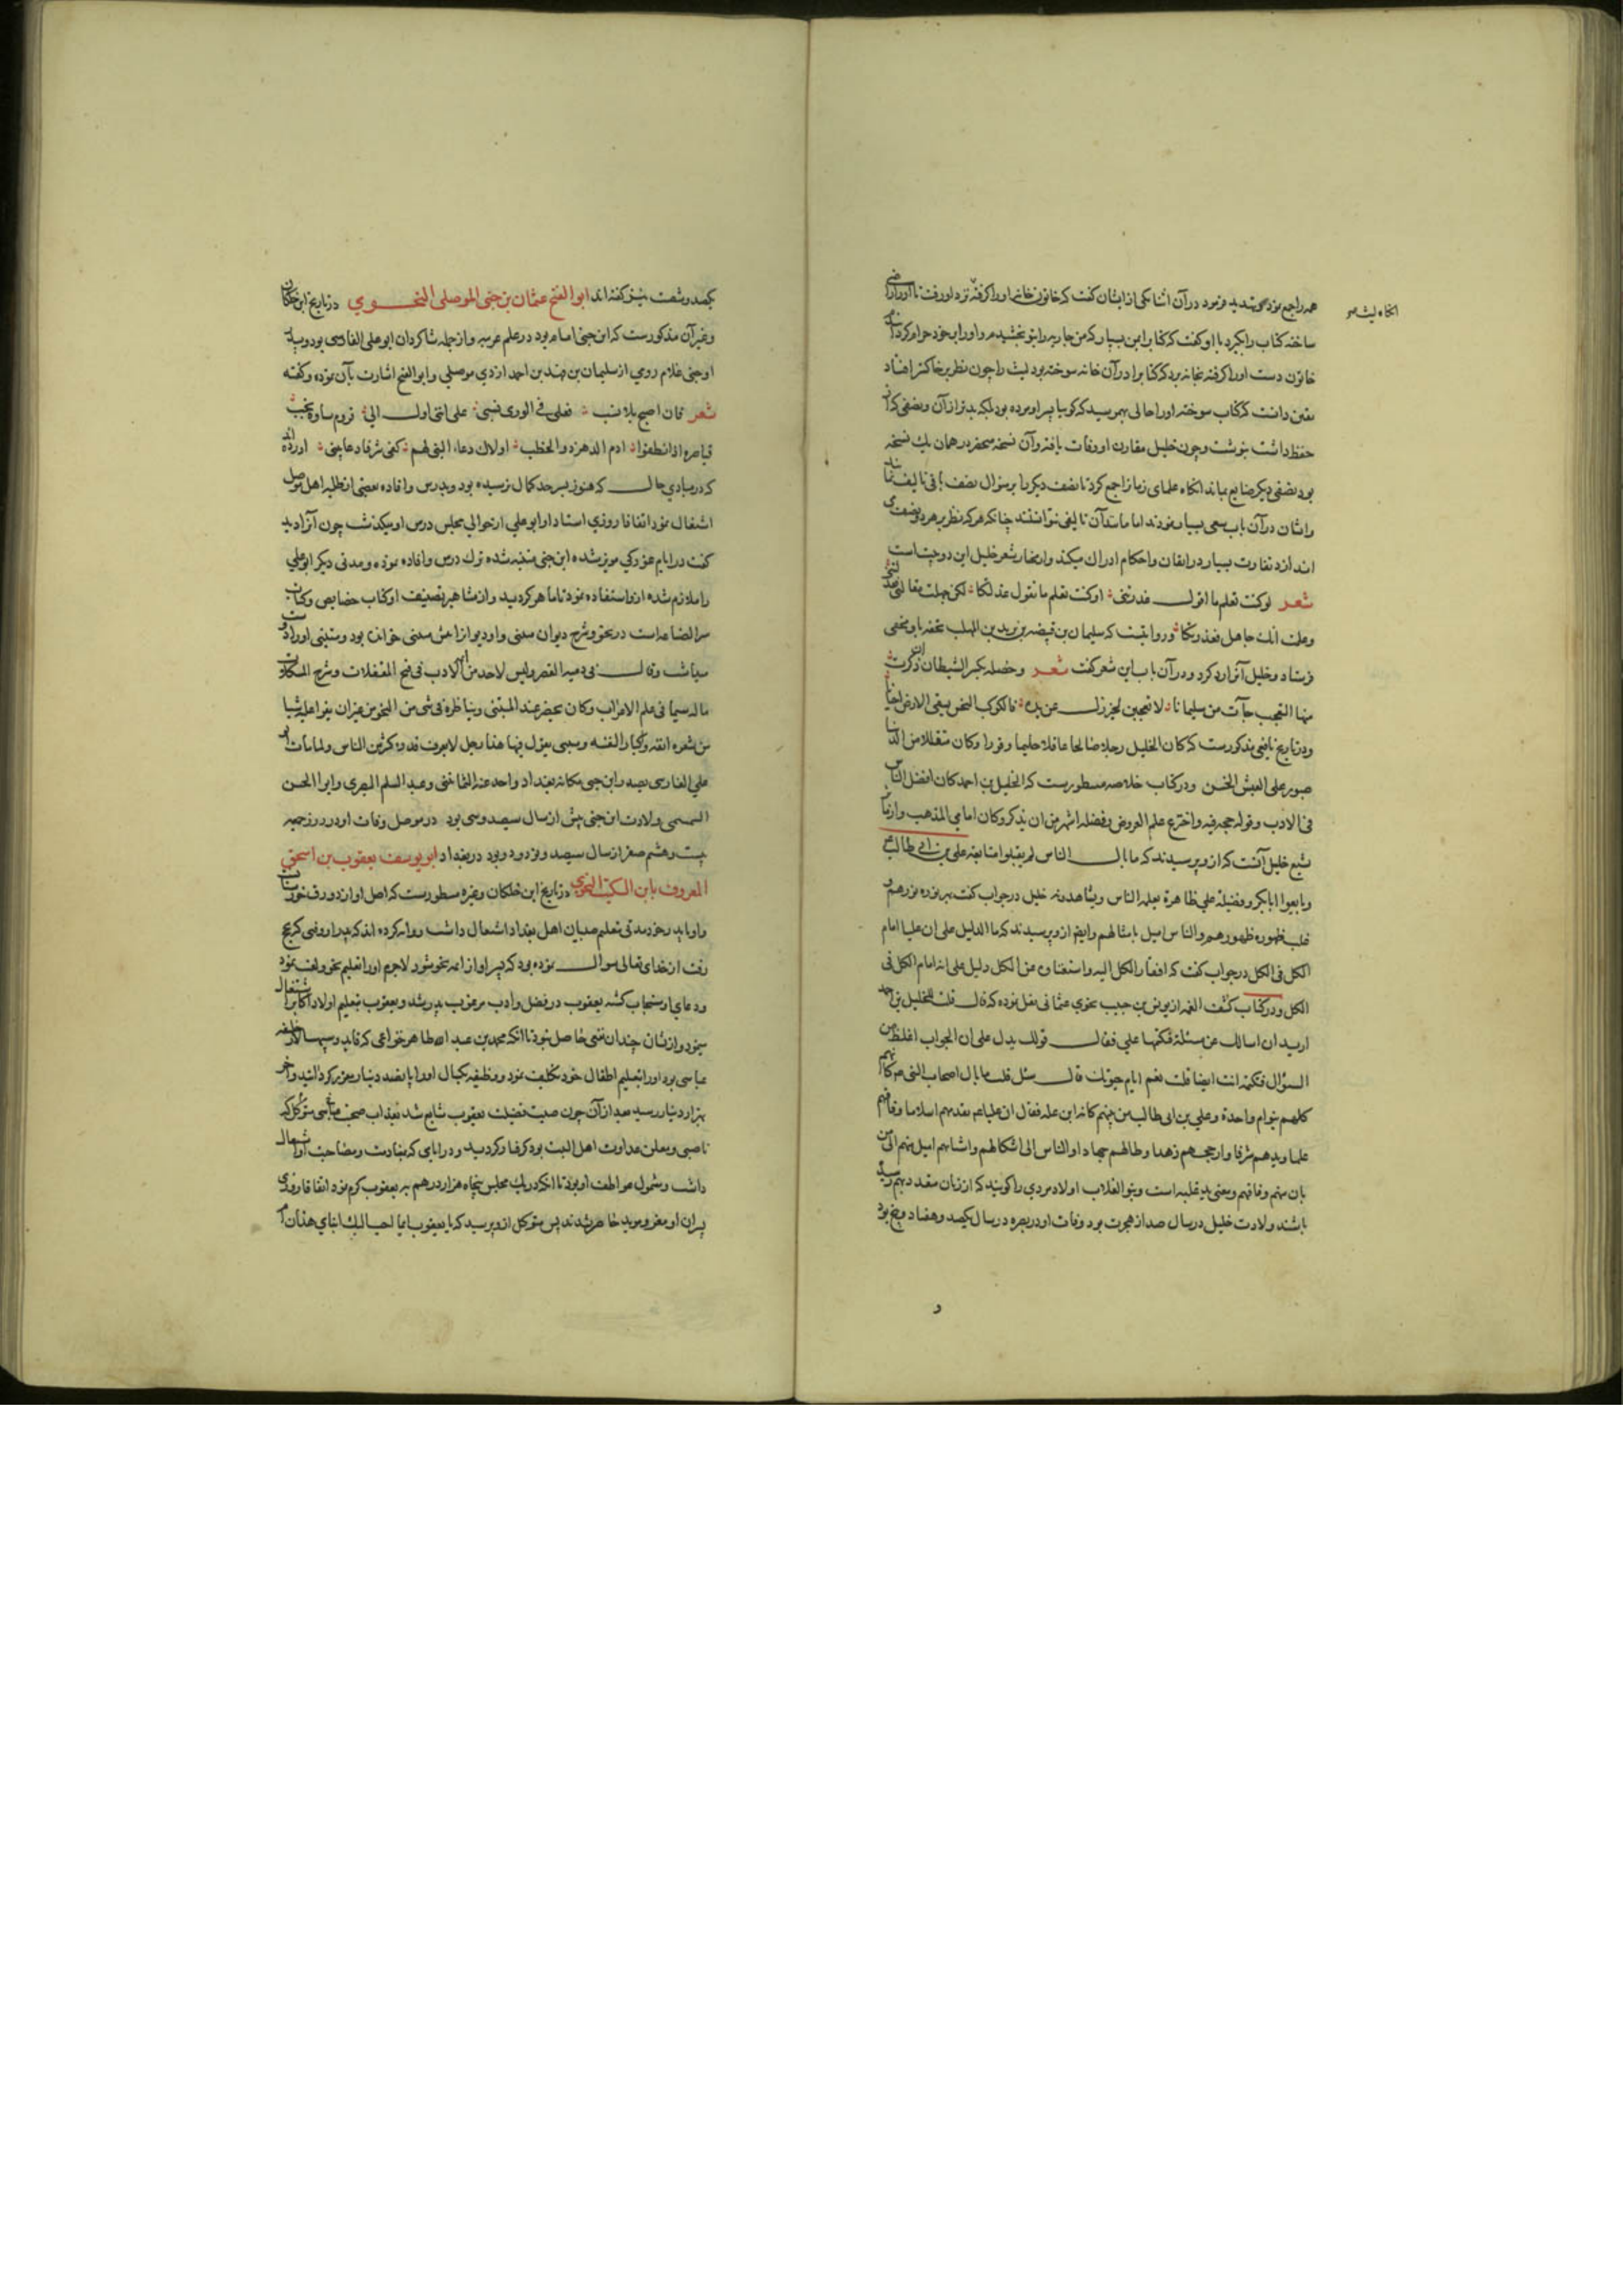 همه را جمع نمود تهدید فرمود در آن اثنا یکی از ایشان گفت که خاتون خانه او را گرفته نزد او رفت تا او را راضی
ساخته کتاب را بگیرد با او گفت که کتاب را بمن بسپار که من جاریه را بتو بخشیدم و او را بر خود حرام کردم
خاتون دست او را گرفته بخانه برد که کتاب را در آن خانه سوخته بود لیث را چون نظر بر خاکستر افتاد
یقین دانست که کتاب سوخته او را حالی بهم رسید که گویا پدر او مرده بود بلکه بدتر از آن و نصفی که از
حفظ داشت بنوشت و چون خلیل مقارن او وفات یافته و آن نسخه منحصر در همان یک نسخه
بود نصفی دیگر ضایع بماند آنگاه علمای زمان را جمع کرد تا نصف دیگر را بر منوال نصف تألیف نمایند
و ایشان در آن باب سعی بسیار نمودند اما مانند آن تألیفی نتوانستند چنانکه هر که نظر بر هر دو نصف
اندازد تفاوت بسیار در اتقان و احکام ادراک میکند و از اشعار شعر خلیل این دو بیت است
شعر لو کنت تعلم ما اقول عذرتنی او کنت تعلم ما تقول عذلتکا لکن جهلت مقالتی فعذلتنی
وعلمت انک جاهل فعذرتکا و روایتست که سلیمان بن قبیصه بن یزید بن المهلب تحفه باو
فرستاد و خلیل آنرا رد کرد و در آن باب این شعر گفت شعر وخصلة یکثر الشیطان ان ذکرت
منها التعجب جآءت من سلیمانا لا تعجبن لخیر زل عن یده فالکوکب النحس یسقی الارض احیانا
و در تاریخ یافعی مذکورست که کان الخلیل رجلا صالحا عاقلا حلیما وقورا وکان متقللا من الدنیا
صبورا علی العیش الخشن و در کتاب خلاصه مسطورست که الخلیل بن احمد کان افضل الناس
فی الادب وقوله حجه فیه واخترع علم العروض وفضله اشهر من ان یذکر وکان امامی المذهب و از
تشیع خلیل آنست که ازو پرسیدند که ما بال الناس لم یقبلوا متابعة علی بن ابی طالب
وبایعوا ابابکر وفضیلة علی ظاهرة یعلمه الناس ویشاهدونه خلیل در جواب گفت بهر نوره نورهم و
غلب ظهوره ظهورهم والناس امیل باشکالهم و ایضا ازو پرسیدند که ما الدلیل علی ان علیا امام
الکل فی الکل در جواب گفت که افتقار الکل الیه واستغناؤه عن الکل دلیل علی انه امام الکل فی
الکل و در کتاب کشف الغمه از یونس بن حبیب نحوی عثمانی نقل نموده که قال قلت للخلیل بن احمد
ارید ان اسالک عن مسئلة فتکتمها علی فقال قولک یدل علی ان الجواب اغلظ من
السؤال فتکتمه انت ایضا قلت نعم ایام حیوتک قال سئل قلت ما بال اصحاب النبی ص کانهم
کلهم بنو ام واحدة وعلی بن ابی طالب من بینهم کانه ابن علة فقال ان علیا ع تقدمهم اسلاما وفاقهم
علما وبذهم شرفا وارجحهم زهدا وطالهم جهادا والناس الی اشکالهم واشباههم امیل منهم الی من
بان منهم وفاقهم
باشند ولادت خلیل در سال صد از هجرت بود وفات او در بصره در سال یکصد و هفتاد و پنج بود
یکصد و شصت نیز گفته اند ابو الفتح عثمان بن جنی الموصلی النحوی در تاریخ ابن خلکان
و غیر آن مذکورست که ابن جنی امام بود در علم عربیه و از جمله شاگردان ابو علی الفارسی بود و پدر
او جنی غلام رومی از سلیمان بن فهد بن احمد ازدی موصلی و ابو الفتح اشارت بآن نموده و گفته
شعر فان اصبح بلا نسب فعلمی فی الوری نسبی علی انی اول الی قروم سادة نجب
قیاصرة اذا نطقوا ارم الدهر ذو الخطب اولاک دعا النبی لهم کفی شرفا دعا نبی آورده اند
که در مبادی حال که هنوز بسر حد کمال نرسیده بود و بدرس و افاده بعضی از طلبه اهل موصل
اشتغال نمود اتفاقا روزی استاد او ابو علی از حوالی مجلس درس او میگذشت چون آنرا دید
گفت در ایام غورگی مویز شده ابن جنی متنبه شده ترک درس و افاده نموده و مدتی دیگر ابو علی
را ملازم شده ازو استفاده نمود تا ماهر گردید و از مشاهیر تصنیف او کتاب خصایص و کتاب
سر الصناعه است در نحو و شرح دیوان متنبی و او دیوان را از متنبی خوانده بود و متنبی او را
فی دمیة القصر ولیس لاحد من ائمة الادب فی فتح المقفلات وشرح المشکلات
ما له سیما فی علم الاعراب وکان یحضر عند المتنبی ویناظره فی شیء من النحو من غیر ان یقرا علیه شیئا
من شعره انفة واکبارا لنفسه والمتنبی یقول فیه هذا رجل لا یعرف قدره کثیر من الناس ولما مات ابو
علی الفارسی تصدر ابن جنی مکانه ببغداد واخذ عنه الثمانینی وعبد السلم البصری وابو الحسن
السمسمی ولادت ابن جنی پیش از سال سیصد و سی بود در موصل وفات او در روز جمعه
بیست و هشتم صفر از سال سیصد و نود و دو بود در بغداد ابو یوسف یعقوب بن اسحق
المعروف بابن السکیت النحوی در تاریخ ابن خلکان و غیره مسطورست که اصل او از دورق خوزستان
و او با پدر خود مدتی بتعلیم صبیان اهل بغداد اشتغال داشت روایت کرده اند که پدر او وقتی که بحج
رفت از خدای تعالی سوال نموده بود که پسر او از ائمه نحو شود لاجرم او را تعلیم نحو و لغت نمود
و دعای او مستجاب گشته یعقوب در فضل و ادب مرغوب پدر شد و یعقوب بتعلیم اولاد اکابر اشتغال
مینمود و ازیشان چندان نفعی حاصل نبود تا آنکه محمد بن عبد الله طاهر خزاعی که قاید و سپهسالار خلیفه
عباسی بود او را بتعلیم اطفال خود تکلیف نمود و وظیفه یکسال او را پانصد دینار مقرر گردانید و آخر
بهزار دینار رسید بعد از آن چون صیت فضیلت یعقوب شایع شد متوکل که
ناصبی و معلن عداوت اهل البیت بود گرفتار گردید و در ایامی که بمنادمت و مصاحبت او اشتغال
داشت و شمول عواطف او بود تا آنکه در یک مجلس پنجاه هزار درهم به یعقوب کرم نمود اتفاقا روزی
پسران او معتز و موید حاضر شدند پس متوکل ازو پرسید که یا یعقوب ایما احب الیک ابنای هذان ام